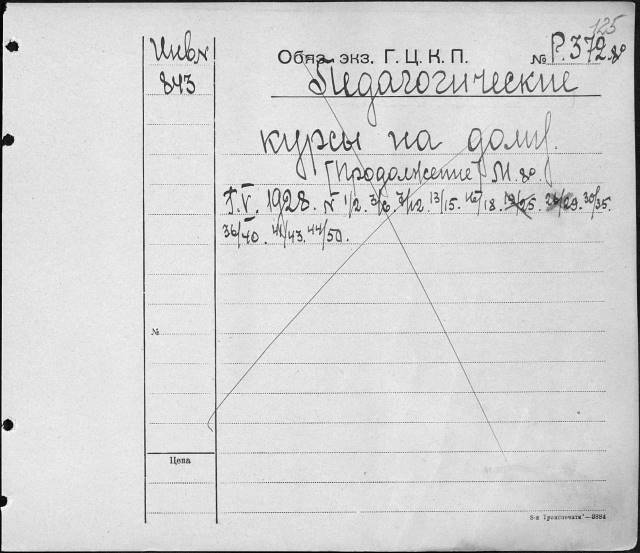 125
Инв №
843
Обяз. экз. Г. Ц. К. П.
№ Р. 372 8°
Педагогические
курсы на дому.
[Продолжение] М. 8°.
Г. V. 1928. № 1/2. 3/6. 7/12. 13/15. 16/18. 19/25. 26/29. 30/35.
36/40. 41/43. 44/50.
№
Цена